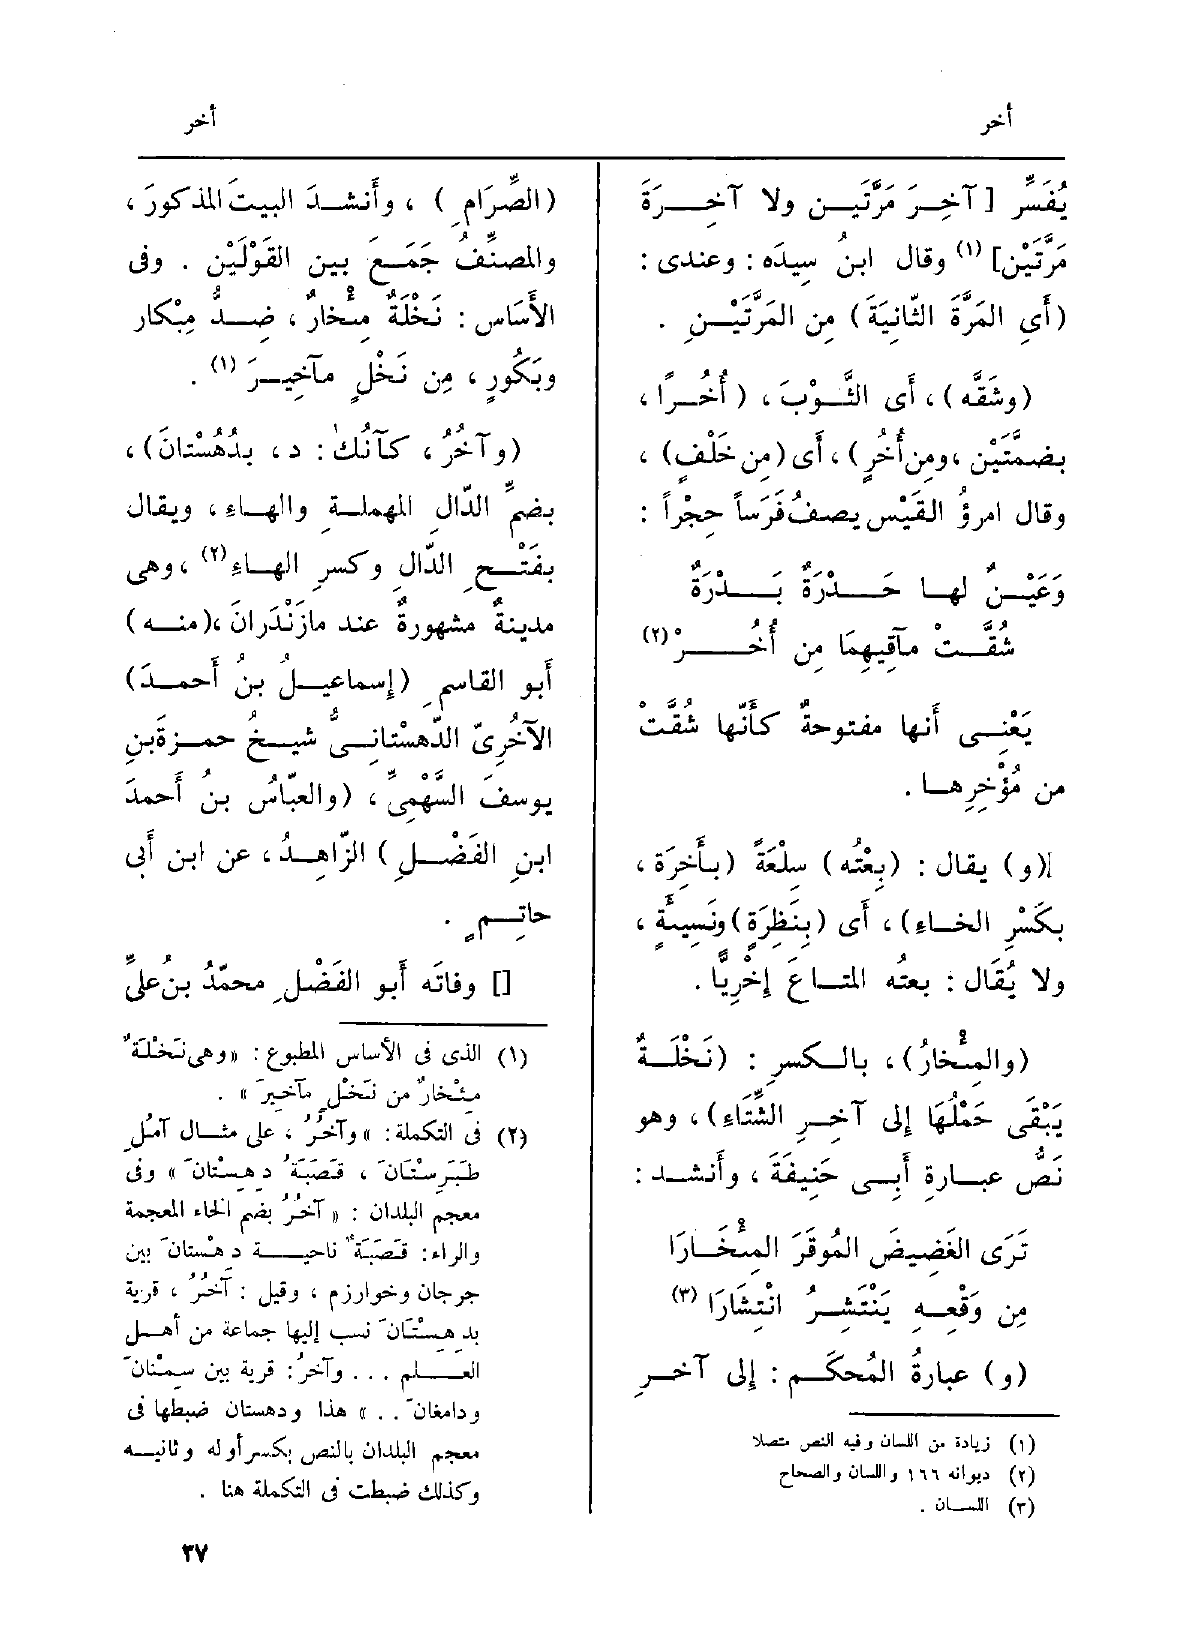 أخر
أخر
يُفَسَّرِ [ آخِرَ مَرَّتَيـن ولا آخِـرَةَ
مَرَّتَيْن] (١) وقال ابنُ سِيدَه : وعندى :
(أَىِ المَرَّةَ الثّانِيَةَ ) مِن المَرَّتَيْـنِ .
(وشَقَّه ) ، أَى الثَّـوْبَ ، ( أُخُـرًا ،
بضمتَّيْن ، ومِن أُخُرٍ) ، أَى (مِن خَلْفٍ ) ،
وقال امرؤُ القَيْس يصفُ فَرَساً حِجْراً :
وَعَيْـنٌ لهـا حَـدْرَةٌ بَـدْرَةٌ
شُقَّـتْ مآقِيهِمَا مِن أُخُـرْ (٢)
يَعْنِـى أَنها مفتوحةٌ كأَنَّها شُقَّتْ
من مُؤْخِرِهـا .
[(و) يقال : (بِعْتُه) سِلْعَةً (بـأَخِرَة ،
بكَسْرِ الخـاءِ) ، أَى (بِنَظِرَةٍ) ونَسِيئَةٍ ،
ولا يُقَال : بعتُه المتـاعَ إِخْرِيًّا .
(والمِئْخارُ) ، بالـكسرِ : (نَخْلَـةٌ
يَبْقَى حَمْلُهَا إِلى آخِـرِ الشِّتَاءِ) ، وهو
نَصُّ عبـارةِ أَبِـى حَنِيفَةَ ، وأَنشـد :
تَرَى الغَضِيضَ المُوقَرَ المِئْخـارَا
مِن وَقْعِـهِ يَنْتَثِـرُ انْتِثَارَا (٣)
(و) عبارةُ المُحكَـم : إِلى آخـرِ
(١) زيادة من اللسان وفيه النص متصلا
(٢) ديوانه ١٦٦ واللسان والصحاح
(٣) اللسـان .
(الصِّرَامِ ) ، وأَنشـدَ البيتَ المذكورَ ،
والمصنِّفُ جَمَـعَ بين القَوْلَيْن . وفى
الأَسَاس : نَخْلَةٌ مِئخارٌ ، ضِـدُّ مِبْكار
وبَكُورٍ ، مِن نَخْلٍ مآخِيـرَ (١) .
(وآخُرُ ، كآنُك : د ، بدُهُسْتَانَ) ،
بضمِّ الدّالِ المهملـةِ والهـاءِ ، ويقال
بفَتْـحِ الدّالِ وكسرِ الهـاءِ (٢) ، وهى
مدينةٌ مشهورةٌ عند مازَنْدَرانَ ، (منـه )
أَبو القاسمِ (إِسماعيـلُ بنُ أَحمـدَ)
الآخُرِىّ الدّهِسْتانِـىُّ شيـخُ حمـزةَ بنِ
يوسفَ السَّهْمِىِّ ، (والعبّاسُ بنُ أَحمدَ
ابنِ الفَضْـلِ ) الزّاهِـدُ ، عن ابن أَبى
حاتِـمٍ .
[] وفاتَه أَبو الفَضْلِ محمّدُ بنُ علىِّ
(١) الذى فى الأساس المطبوع : «وهى نَخْلَةٌ
مِئْخارٌ من نَخْلٍ مآخيرَ » .
(٢) فى التكملة : «وآخُرُ ، على مثـال آمُلِ
طَبَرِسْتَانَ ، قَصَبَةُ دهِسْتانَ » وفى
معجم البلدان : « آخُرُ بضم الخاء المعجمة
والراء: قَصَبَةُ ناحيـة دهْستانَ بين
جرجان وخوارزم ، وقيل : آخُرُ ، قرية
بدهِسْتَانَ نسب إليها جماعة من أهـل
العـلم ... وآخُرُ : قرية بين سِمْنانَ
ودامغانَ .. » هذا ودهستان ضبطها فى
معجم البلدان بالنص بكسر أوله وثانيـه
وكذلك ضبطت فى التكملة هنا .
٣٧